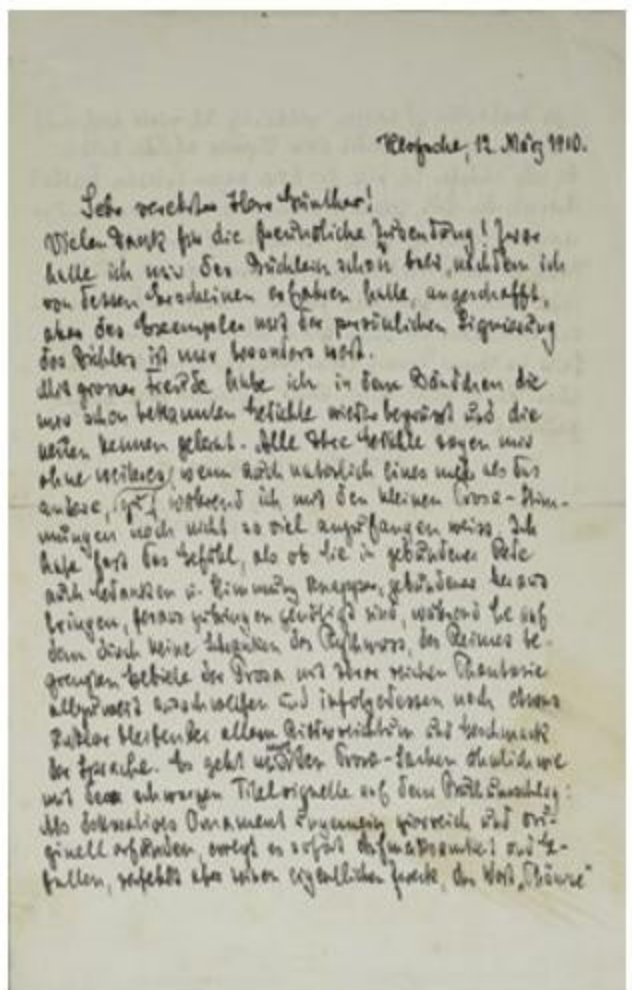 Klotzsche, 12. März 1910.
Sehr verehrter Herr Günther!
Vielen Dank für die freundliche Zusendung! Zwar
hatte ich mir das Büchlein schon bald, nachdem ich
von dessen Erscheinen erfahren hatte, angeschafft,
aber das Exemplar mit der persönlichen Signierung
des Dichters ist mir besonders wert.
Mit grosser Freude habe ich in dem Bändchen die
mir schon bekannten Gedichte wieder begrüsst und die
neuen kennen gelernt. Alle Ihre Gedichte sagen mir
ohne weiteres, wenn auch natürlich eines mehr als das
andere, zu, während ich mit den kleinen Prosa-Stim-
mungen noch nicht so viel anzufangen weiss. Ich
habe fast das Gefühl, als ob Sie in gebundener Rede
auch Gedanken u. Stimmung knapper, gebundener heraus
bringen, heraus zu bringen genötigt sind, während Sie auf
dem durch keine Schranken des Rhythmus, des Reimes be-
grenzten Gebiete der Prosa mit Ihrer reichen Phantasie
allzuweit ausschweifen und infolgedessen noch etwas
bleiben bei allem Bilderreichtum und Geschmack
der Sprache. Es geht mit den Prosa-Sachen ähnlich wie
mit der schwarzen Titelvignette auf dem Umschlag:
Als dekoratives Ornament ungemein zierreich und ori-
ginell erfunden, erregt es sofort Aufmerksamkeit und Ge-
fallen, verfehlt aber seinen eigentlichen Zweck, das Wort